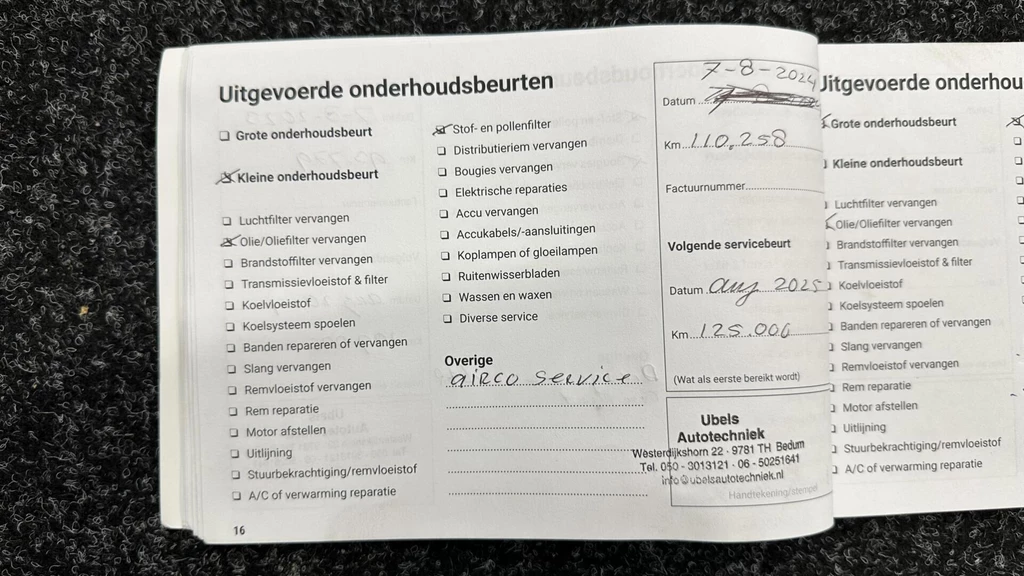 Uitgevoerde onderhoudsbeurten
Grote onderhoudsbeurt
Kleine onderhoudsbeurt
Luchtfilter vervangen
Olie/Oliefilter vervangen
Brandstoffilter vervangen
Transmissievloeistof & filter
Koelvloeistof
Koelsysteem spoelen
Banden repareren of vervangen
Slang vervangen
Remvloeistof vervangen
Rem reparatie
Motor afstellen
Uitlijning
Stuurbekrachtiging/remvloeistof
A/C of verwarming reparatie
16
Stof- en pollenfilter
Distributieriem vervangen
Bougies vervangen
Elektrische reparaties
Accu vervangen
Accukabels/-aansluitingen
Koplampen of gloeilampen
Ruitenwisserbladen
Wassen en waxen
Diverse service
Overige
airco service
7-8-2024
Datum
Km...110.258
Factuurnummer
Volgende servicebeurt
Datum aug 2025
Km...125.000
(Wat als eerste bereikt wordt)
Ubels
Autotechniek
Westerdijkshorn 22 - 9781 TH Bedum
Tel. 050 - 3013121 - 06 - 50251641
info@ubelsautotechniek.nl
Handtekening/stempel
Uitgevoerde onderhou
Grote onderhoudsbeurt
Kleine onderhoudsbeurt
Luchtfilter vervangen
Olie/Oliefilter vervangen
Brandstoffilter vervangen
Transmissievloeistof & filter
Koelvloeistof
Koelsysteem spoelen
Banden repareren of vervangen
Slang vervangen
Remvloeistof vervangen
Rem reparatie
Motor afstellen
Uitlijning
Stuurbekrachtiging/remvloeistof
A/C of verwarming reparatie